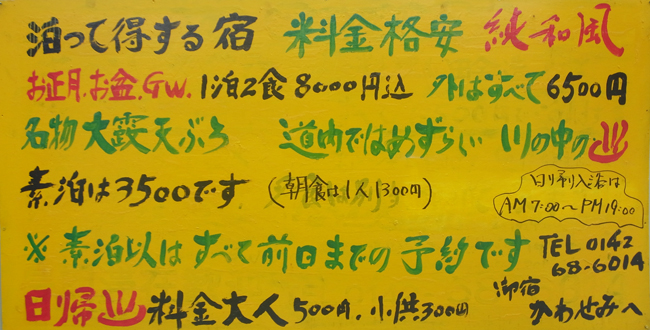 泊って得する宿 料金格安 純和風
お正月.お盆.GW. 1泊2食8000円込 外はすべて6500円
名物大露天ぶろ 道内ではめずらしい 川の中の♨
素泊は3500です (朝食は1人1300円)
日り帰入浴は
AM7:00～PM19:00
※素泊以はすべて前日までの予約です
TEL 0142
68-6014
日帰♨料金大人500円.小供300円
御宿
かわせみへ